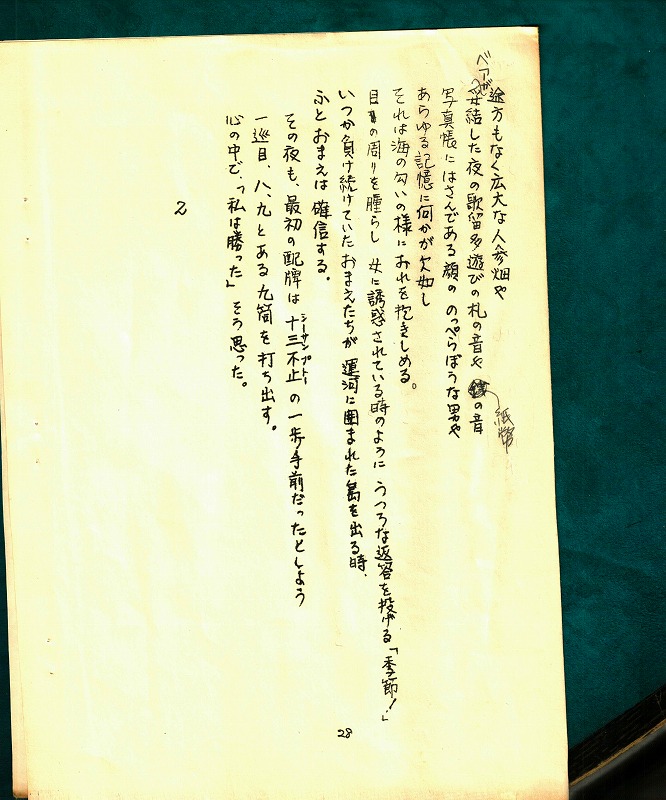 途方もなく広大な人参畑や
結した夜の歌留多遊びの札の音や の音
紙幣
写真帳にはさんである顔の のっぺらぼうな男や
あらゆる記憶に何かが欠如し
それは海の匂いの様におれを抱きしめる。
目の周りを腫らし 女に誘惑されている時のように うつろな返答を投げる「季節!」
いつか負け続けていた おまえたちが 運河に囲まれた島を出る時、
ふと おまえは 確信する。
その夜も、最初の配牌は 十三不止 の一歩手前だったとしよう
シーサンプトー
一巡目、八、九とある九筒を打ち出す。
心の中で、「私は勝った」 そう思った。
2
28